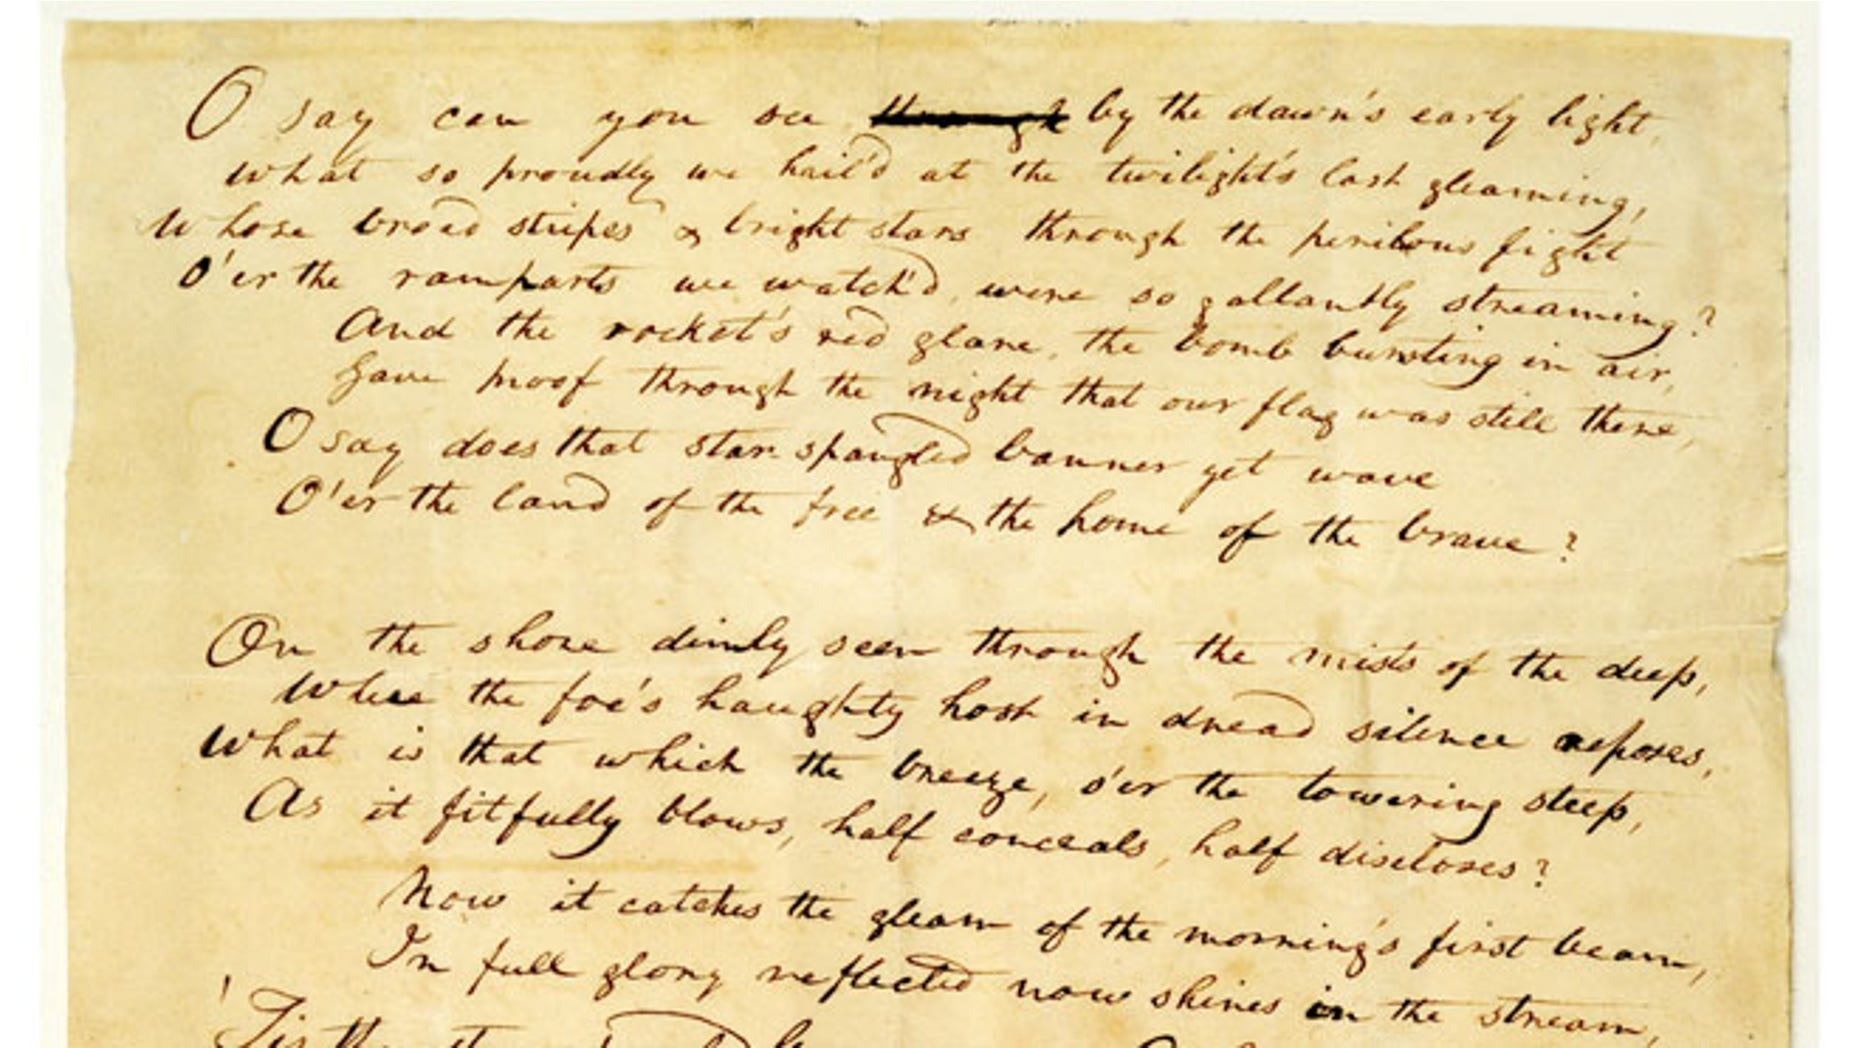 O say can you see ~~through~~ by the dawn's early light,
What so proudly we hail'd at the twilight's last gleaming,
Whose broad stripes & bright stars through the perilous fight
O'er the ramparts we watch'd, were so gallantly streaming?
And the rocket's red glare, the bomb bursting in air,
Gave proof through the night that our flag was still there,
O say does that star spangled banner yet wave
O'er the land of the free & the home of the brave?
On the shore dimly seen through the mists of the deep,
Where the foe's haughty host in dread silence reposes,
What is that which the breeze, o'er the towering steep,
As it fitfully blows, half conceals, half discloses?
Now it catches the gleam of the morning's first beam,
In full glory reflected now shines in the stream,
'Tis the